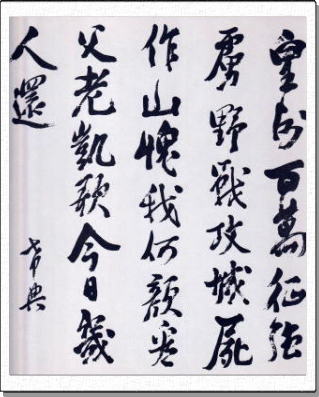 皇師百萬征強
虜野戰攻城屍
作山愧我何顔看
父老凱歌今日幾
人還
希典